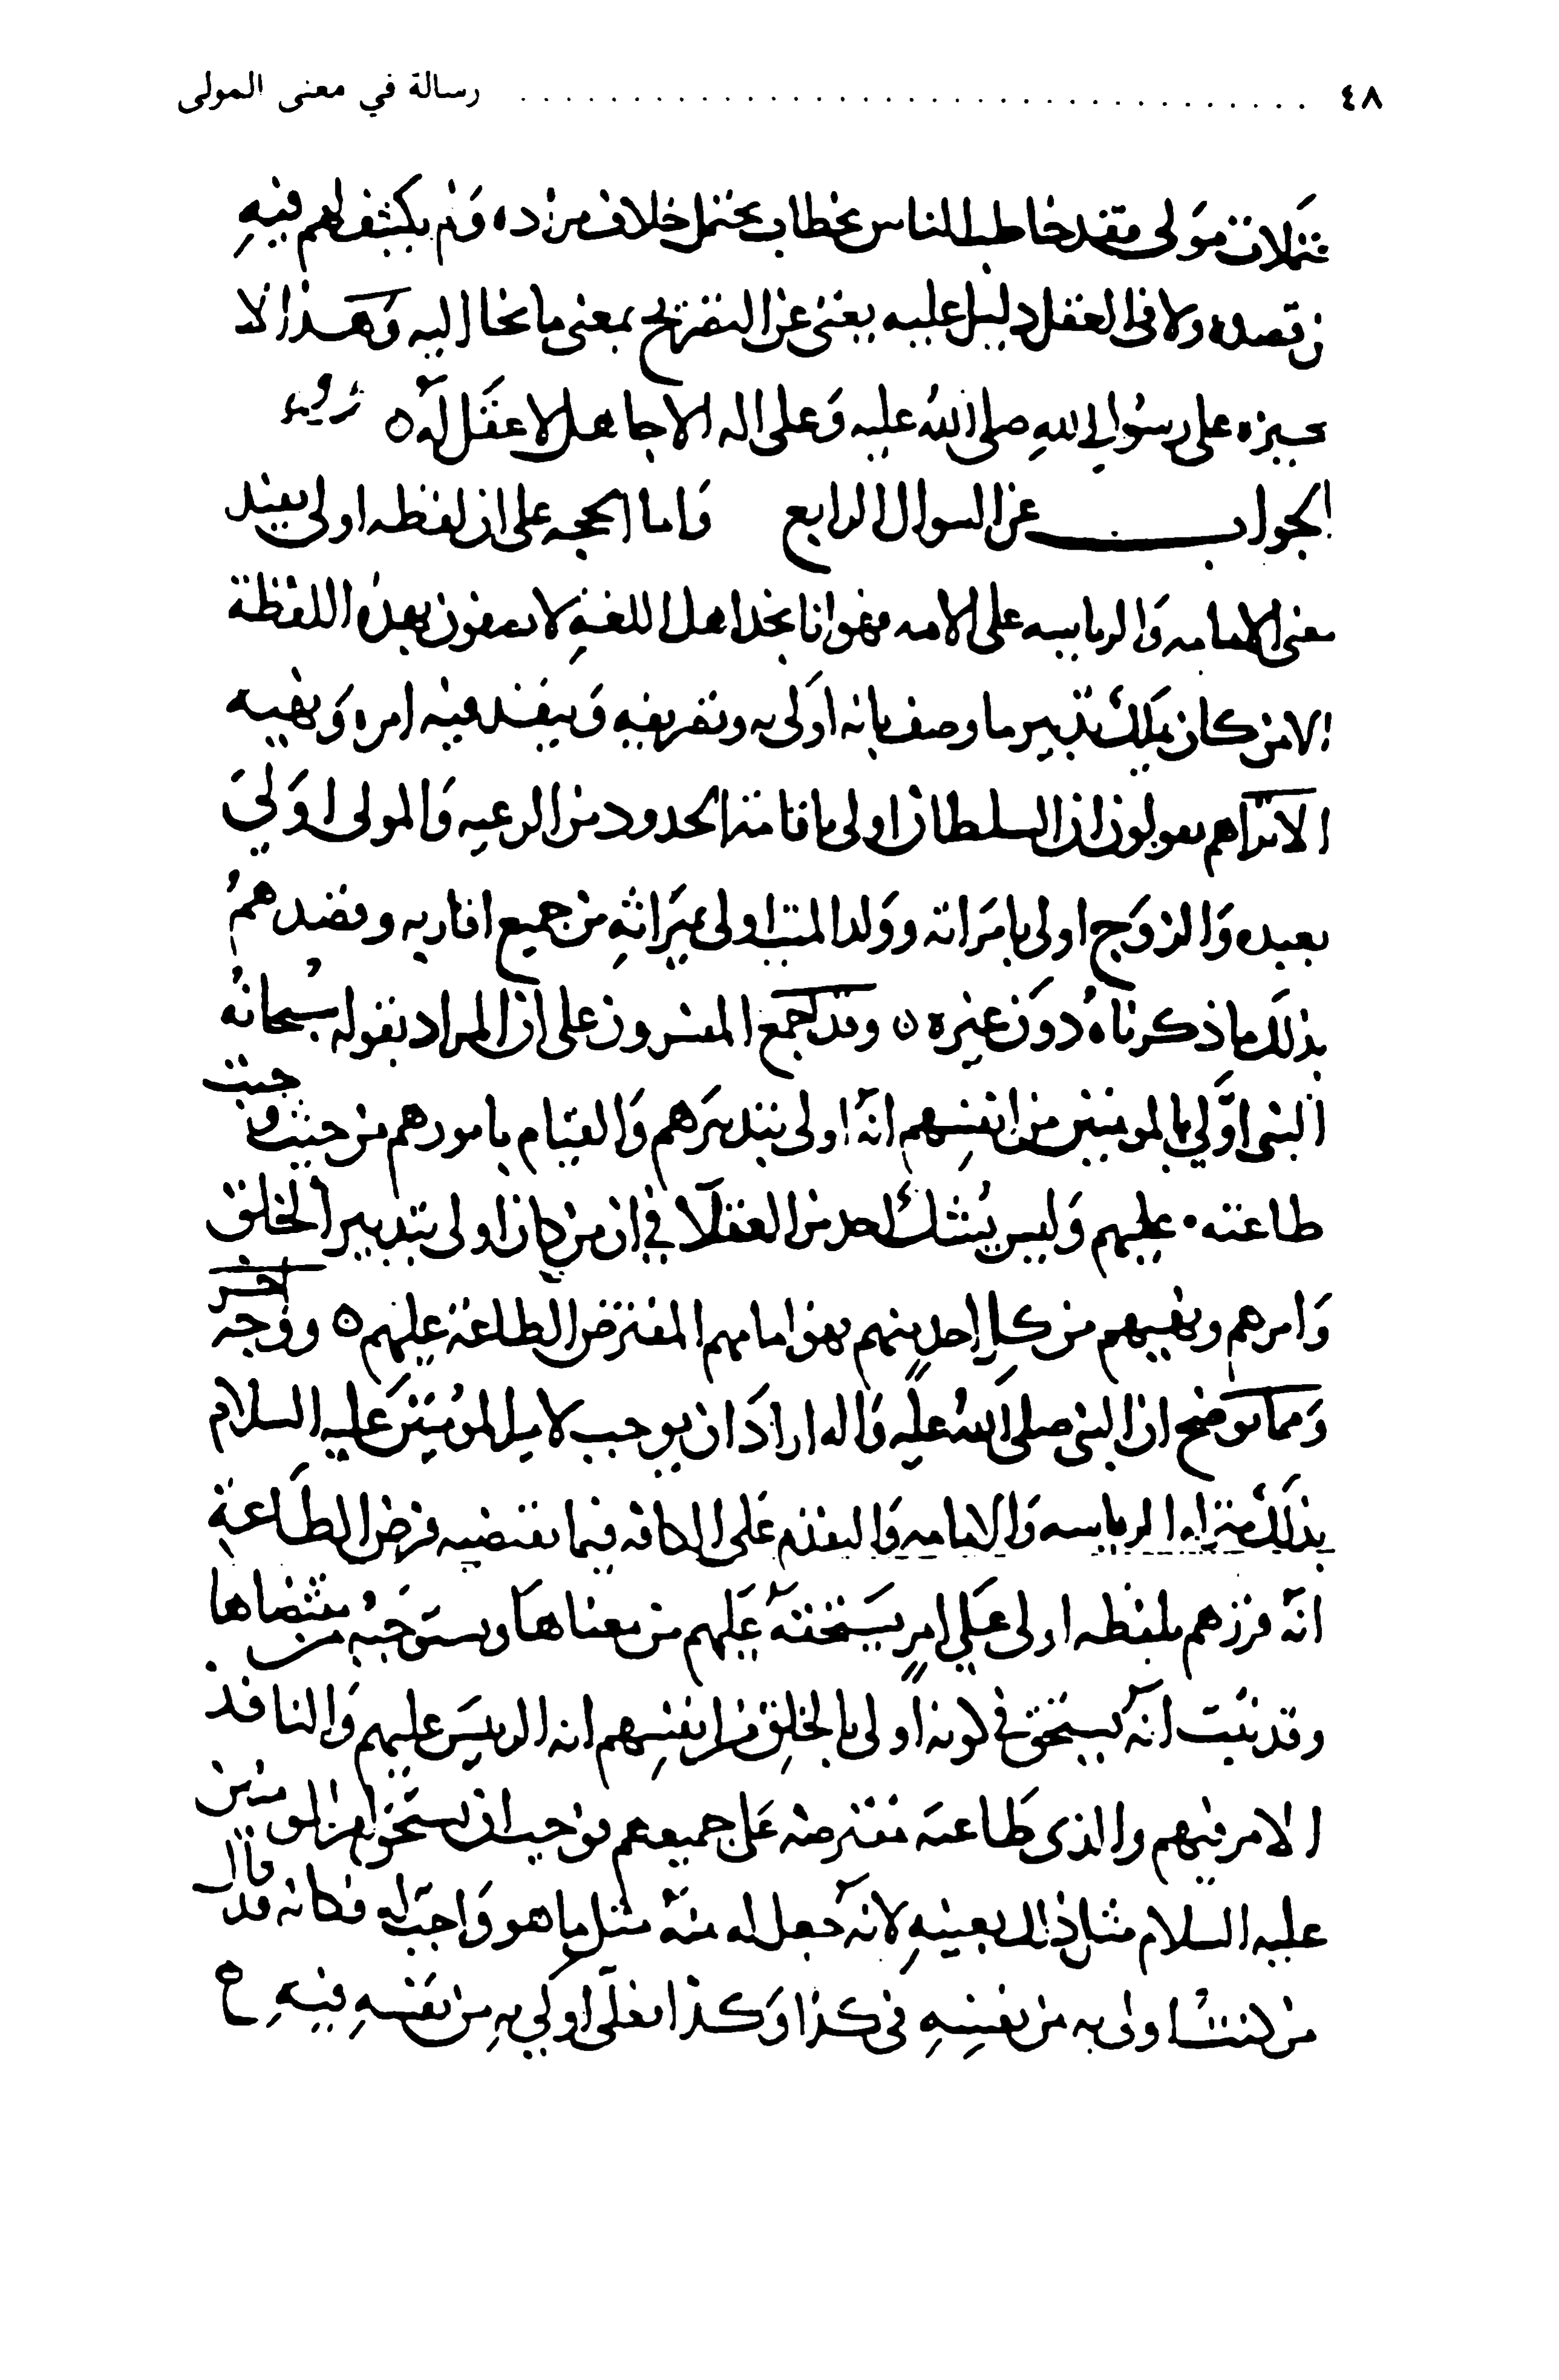 ٤٨ ................................... رسالة في معنى المولى
محتملات مولى فقد خاطب الناس بخطاب يحتمل خلاف مراده ولم يكشف لهم فيه
عن قصده ولا في العقل دليل عليه يغنى عن التصريح بمعنى ما نحا اليه وهذا لا
يجيزه على رسول الله صلى الله عليه وعلى اله الا جاهل لا عقل له ٥
الجواب عن السوال الرابع واما الحجه على ان لفظه اولى يفيد
معنى الامامه والرياسه على الامه فهو انا نجد اهل اللغة لا يصفون بهذه اللفظة
الا من كان يملك تدبير ما وصف بانه اولى به وتصريفه وينفذ فيه امره ونهيه
الا تراهم يقولون ان السلطان اولى باقامة الحدود من الرعيه والمولى اولى
بعبده والزوج اولى بامراته وولد الميت اولى بميراثه من جميع اقاربه وقصدهم
بذلك ما ذكرناه دون غيره ٥ وقد اجمع المفسرون على ان المراد بقوله سبحانه
النبى اولى بالمومنين من انفسهم انه اولى بتدبيرهم والقيام بامورهم من حيث وجبت
طاعته عليهم وليس يشك احد من العقلا في ان من كان اولى بتدبير الخلق
وامرهم ونهيهم من كل احد منهم فهو امامهم المفترض الطاعة عليهم ٥ ووجه اخر
ومما يوضح ان النبى صلى الله عليه واله اراد ان يوجب لامير المومنين عليه السلام
بذلك منزله الرياسه والامامه والتقدم على الكافه فيما يقتضيه فرض الطاعة
انه قررهم بلفظه اولى على امر يستحقه عليهم من معناها ويستوجبه من مقتضاها
وقد ثبت انه يستحق في كونه اولى بالخلق من انفسهم انه الرييس عليهم والنافذ
الامر فيهم والذى طاعته مفترضه على جميعهم فوجب ان يستحق امير المومنين
عليه السلام مثل ذلك بعينه لانه جعل له منه مثل ما هو واجب له فكانه قال
من كنت اولى به من نفسه في كذا وكذا فعلى اولى به من نفسه فيه